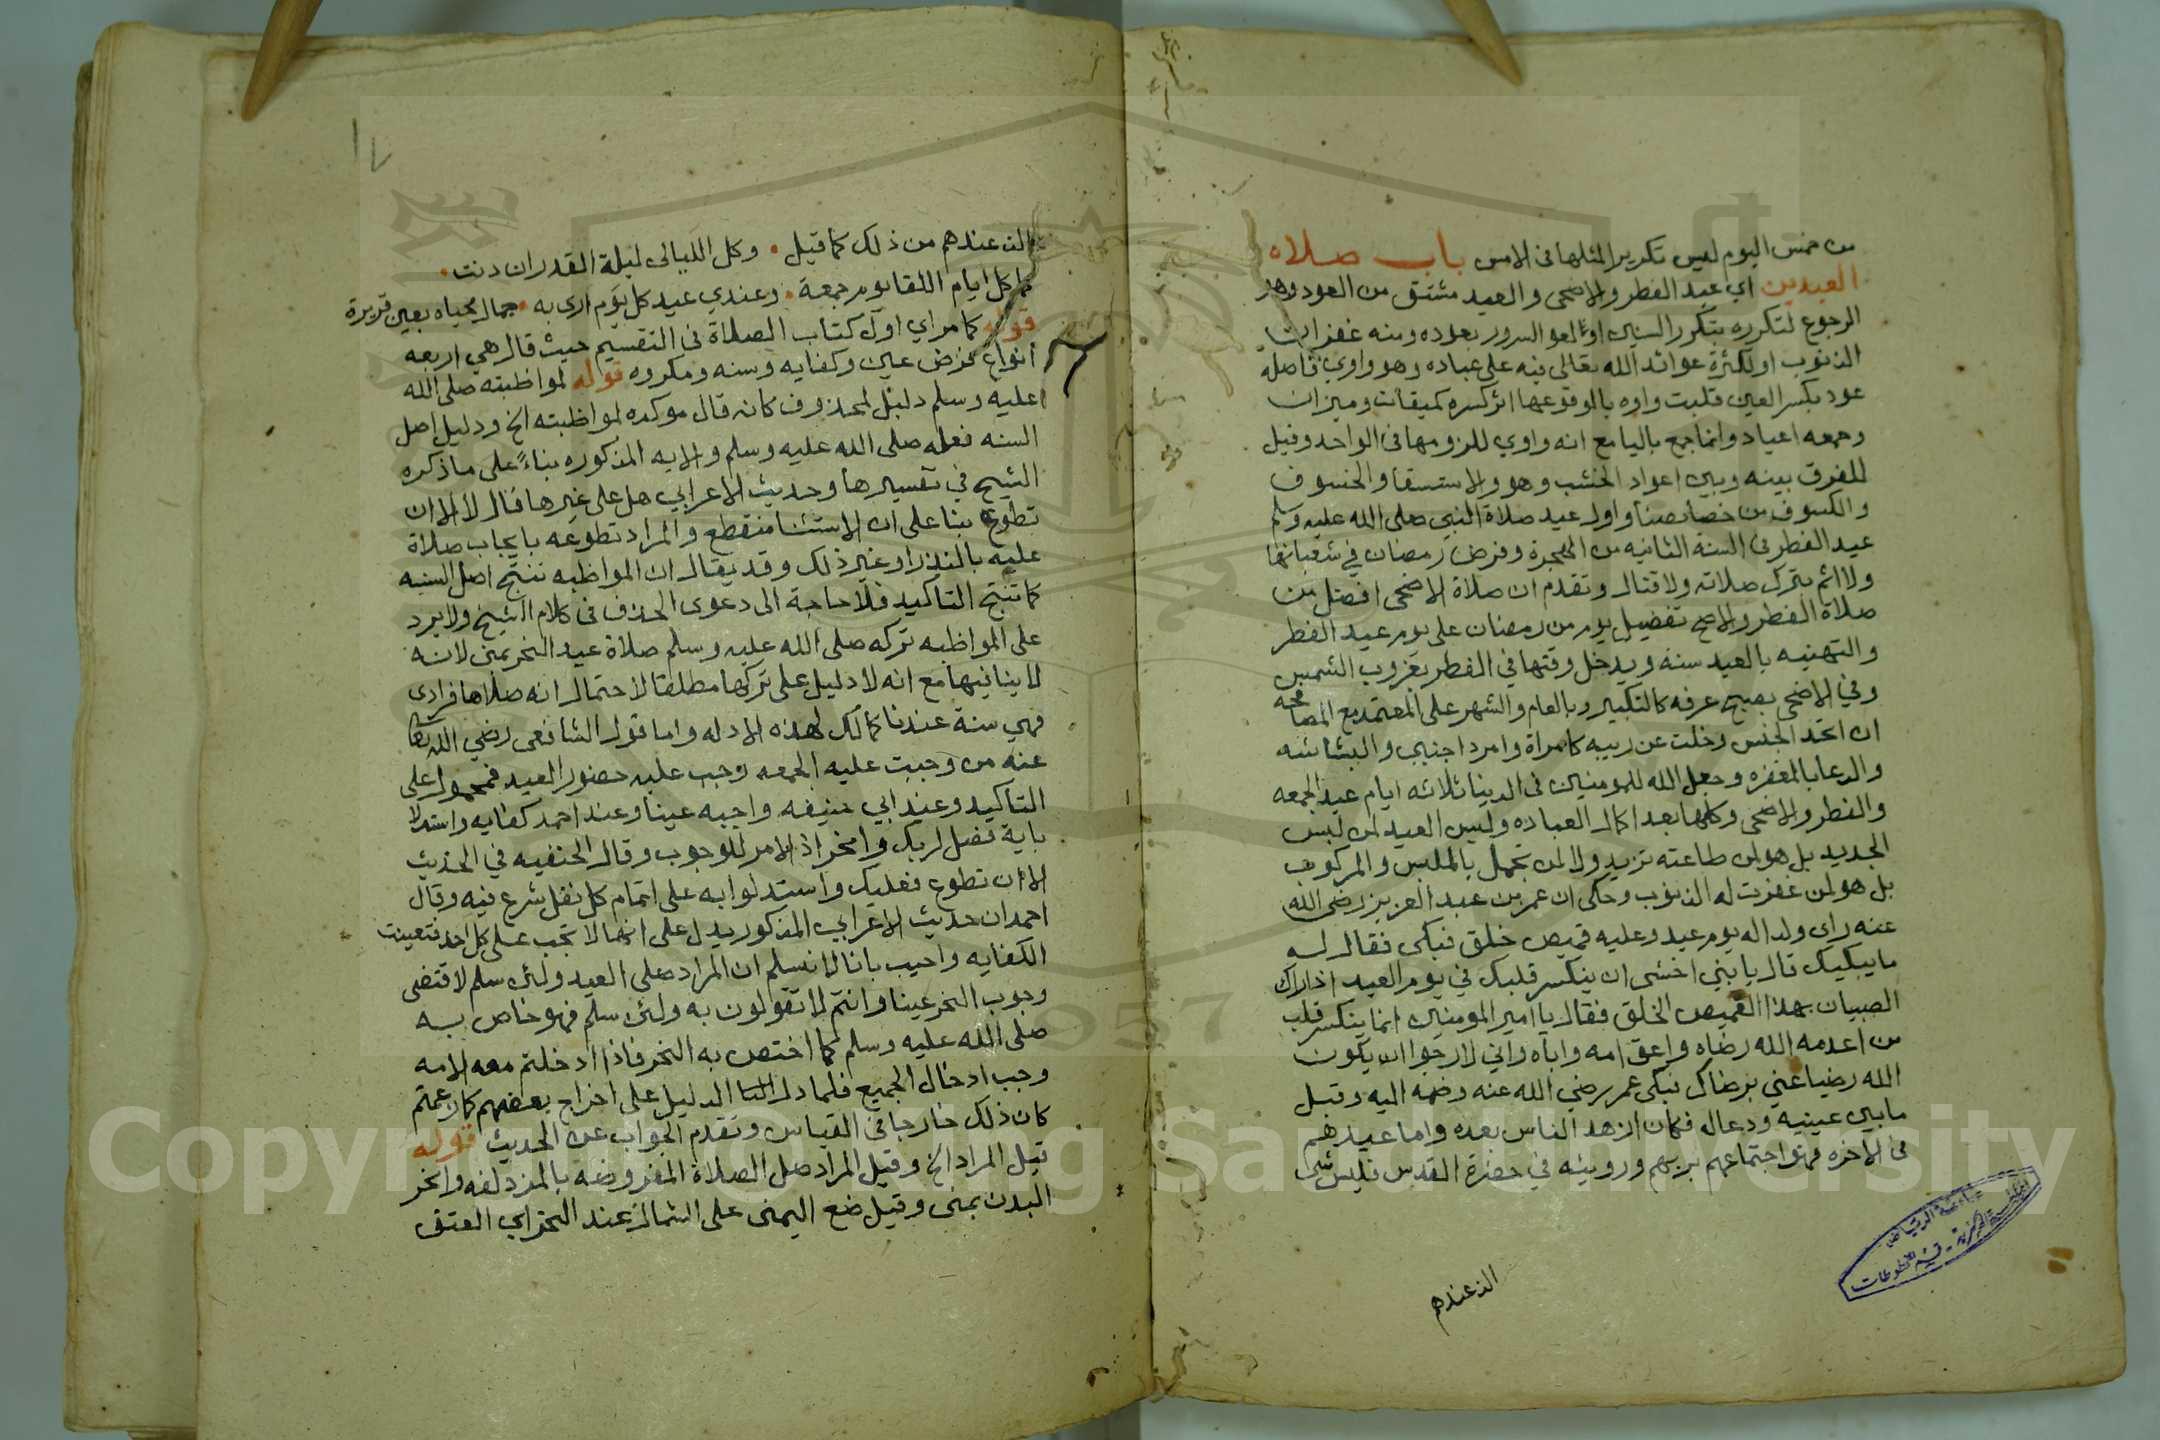 من خمس اليوم ليس تكريرا لمثلها في الامس باب صلاه
العيدين اي عيد الفطر والاضحى والعيد مشتق من العود وهو
الرجوع لتكرره بتكرر السنين او لعود السرور بعوده ومنه غفران
الذنوب او لكثرة عوائد الله تعالى فيه على عباده وهو واوي فاصله
عود بكسر العين قلبت واوه يا لوقوعها اثر كسره كميقات وميزان
وجمعه اعياد وانما جمع باليا مع انه واوي للزومها في الواحد وقيل
للفرق بينه وبين اعواد الخشب وهو والاستسقا والخسوف
والكسوف من خصائصنا واول عيد صلاة النبي صلى الله عليه وسلم
عيد الفطر في السنة الثانيه من الهجرة وفرض رمضان في شعبانها
ولا اثم بترك صلاته ولا قتال وتقدم ان صلاة الاضحى افضل من
صلاة الفطر والاصح تفضيل يوم من رمضان على يوم عيد الفطر
والتهنيه بالعيد سنه ويدخل وقتها في الفطر بغروب الشمس
وفي الاضحى بصبح عرفه كالتكبير وبالعام والشهر على المعتمد مع المصافحه
ان اتحد الجنس وخلت عن ريبه كامراة وامرد اجنبي والبشاشه
والدعا بالمغفره وجعل الله للمومنين في الدينا ثلاثه ايام عيد الجمعه
والفطر والاضحى وكلها بعد اكمال العباده وليس العيد لمن لبس
الجديد بل هو لمن طاعته تزيد ولا لمن تجمل بالملبس والمركوب
بل هو لمن غفرت له الذنوب وحكى ان عمر بن عبد العزيز رضى الله
عنه راى ولدا له يوم عيد وعليه قميص خلق فبكى فقال له
ما يبكيك قال يا بني اخشى ان ينكسر قلبك في يوم العيد اذا راك
الصبيان بهذا القميص الخلق فقال يا امير المومنين انما ينكسر قلب
من اعدمه الله رضاه وعق امه واباه واني لارجوا ان يكون
الله رضيا عني برضاك فبكى عمر رضي الله عنه وضمه اليه وقبل
ما بين عينيه ودعا له فكان ازهد الناس بعده واما عيدهم
في الاخره فهو اجتماعهم بربهم ورويته في حضرة القدس فليس شى
الذ عندهم
جامعة الرياض
المكتبة المركزية - قسم المخطوطات
١٧
الذ عندهم من ذلك كما قيل . وكل الليالى ليلة القدر ان دنت .
كما كل ايام اللقا يوم جمعة . وعندي عيد كل يوم ارى به . جمال محياه بعين قريرة
قوله كما مر اي اول كتاب الصلاة في التقسيم حيث قال هي اربعه
انواع فرض عين وكفايه وسنه ومكروه قوله لمواظبته صلى الله
عليه وسلم دليل لمحذوف كانه قال موكده لمواظبته الخ ودليل اصل
السنه فعله صلى الله عليه وسلم والايه المذكوره بناءً على ما ذكره
الشيخ في تفسيرها وحديث الاعرابي هل على غيرها قال لا الا ان
تطوع بنا على ان الاستثنا منقطع والمراد تطوعه بايجاب صلاة
عليه بالنذر او غير ذلك وقد يقال ان المواظبه تنتج اصل السنيه
كما تنتج التاكيد فلا حاجة الى دعوى الحذف في كلام الشيخ ولا يرد
على المواظبه تركه صلى الله عليه وسلم صلاة عيد النحر بمنى لانه
لا ينافيها مع انه لا دليل على تركها مطلقا لاحتمال انه صلاها فرادى
فهي سنة عندنا كمالك لهذه الادله واما قول الشافعى رضي الله تعا
عنه من وجبت عليه الجمعه وجب عليه حضور العيد فمحمول على
التاكيد وعند ابي حنيفه واجبه عينا وعند احمد كفايه واستدلا
باية فصل لربك وانحر اذ الامر للوجوب وقال الحنفيه في الحديث
الا ان تطوع فعليك واستدلوا به على اتمام كل نفل شرع فيه وقال
احمد ان حديث الاعرابي المذكور يدل على انها لا تجب على كل احد فتعينت
الكفايه واجيب بانا لا نسلم ان المراد صلى العيد ولئن سلم لاقتضى
وجوب النحر عينا وانتم لا تقولون به ولئن سلم فهو خاص به
صلى الله عليه وسلم كما اختص به النحر فاذا ادخلتم معه الامه
وجب ادخال الجميع فلما دلنا الدليل على اخراج بعضهم كما زعمتم
كان ذلك خارجا في القياس وتقدم الجواب عن الحديث قوله
قيل المراد الخ وقيل المراد صل الصلاة المفروضه بالمزدلفه وانحر
البدن بمنى وقيل ضع اليمنى على الشمال عند النحر اي العتق
Copyright © King Saud University